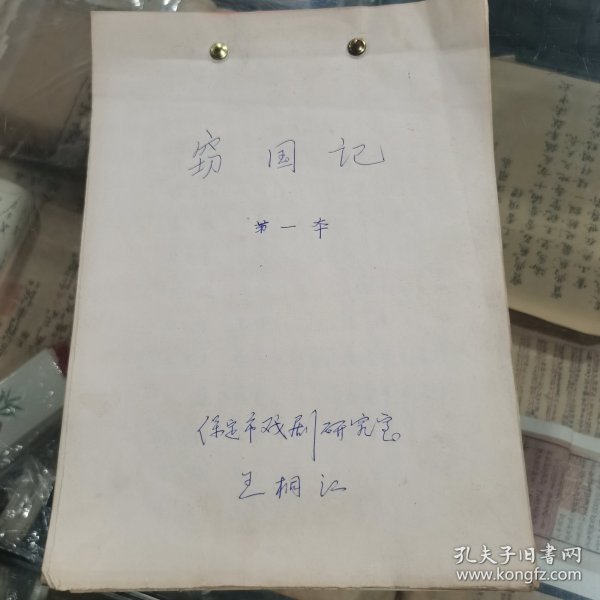 窃国记
第一本
保定市戏剧研究室
王桐江
孔夫子旧书网
www.kongfz.com